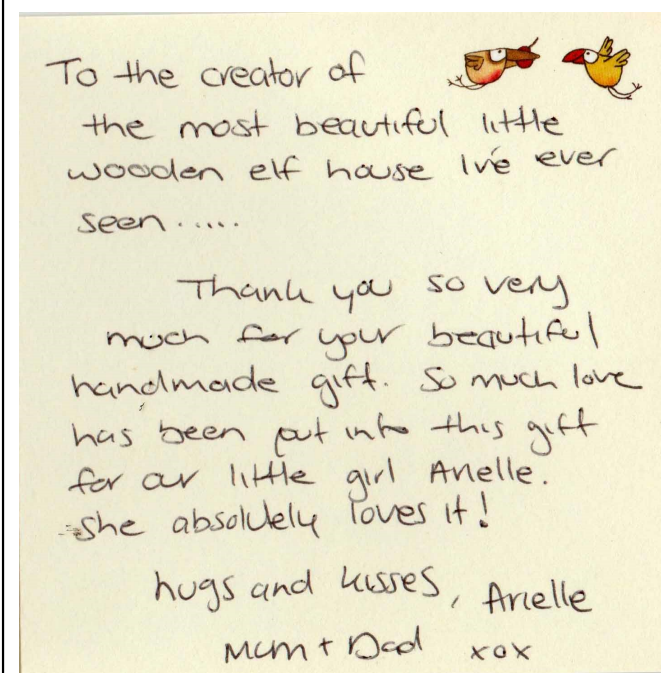 To the creator of
the most beautiful little
wooden elf house I've ever
seen.....
Thank you so very
much for your beautiful
handmade gift. So much love
has been put into this gift
for our little girl Arielle.
She absolutely loves it!
hugs and kisses, Arielle
Mum + Dad xox